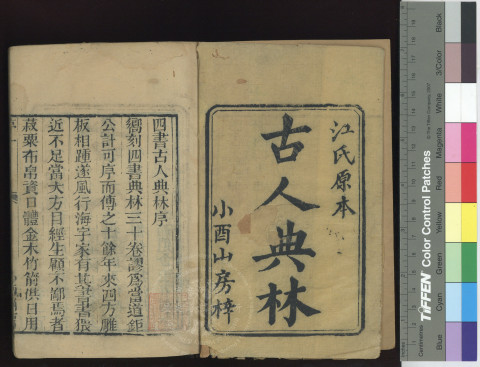 江氏原本
古人典林
小酉山房梓
四書古人典林序
嚮刻四書典林三十卷謬爲當道鉅
公計可序而傳之十餘年來四方雕
板相踵遂風行海宇家有其書書猥
近不足當大方目經生顧不鄙焉者
菽粟布帛資口體金木竹箭供日用
TIFFEN Color Control Patches
© The Tiffen Company, 2007
Centimetres
Blue
Cyan
Green
Yellow
Red
Magenta
White
3/Color
Black